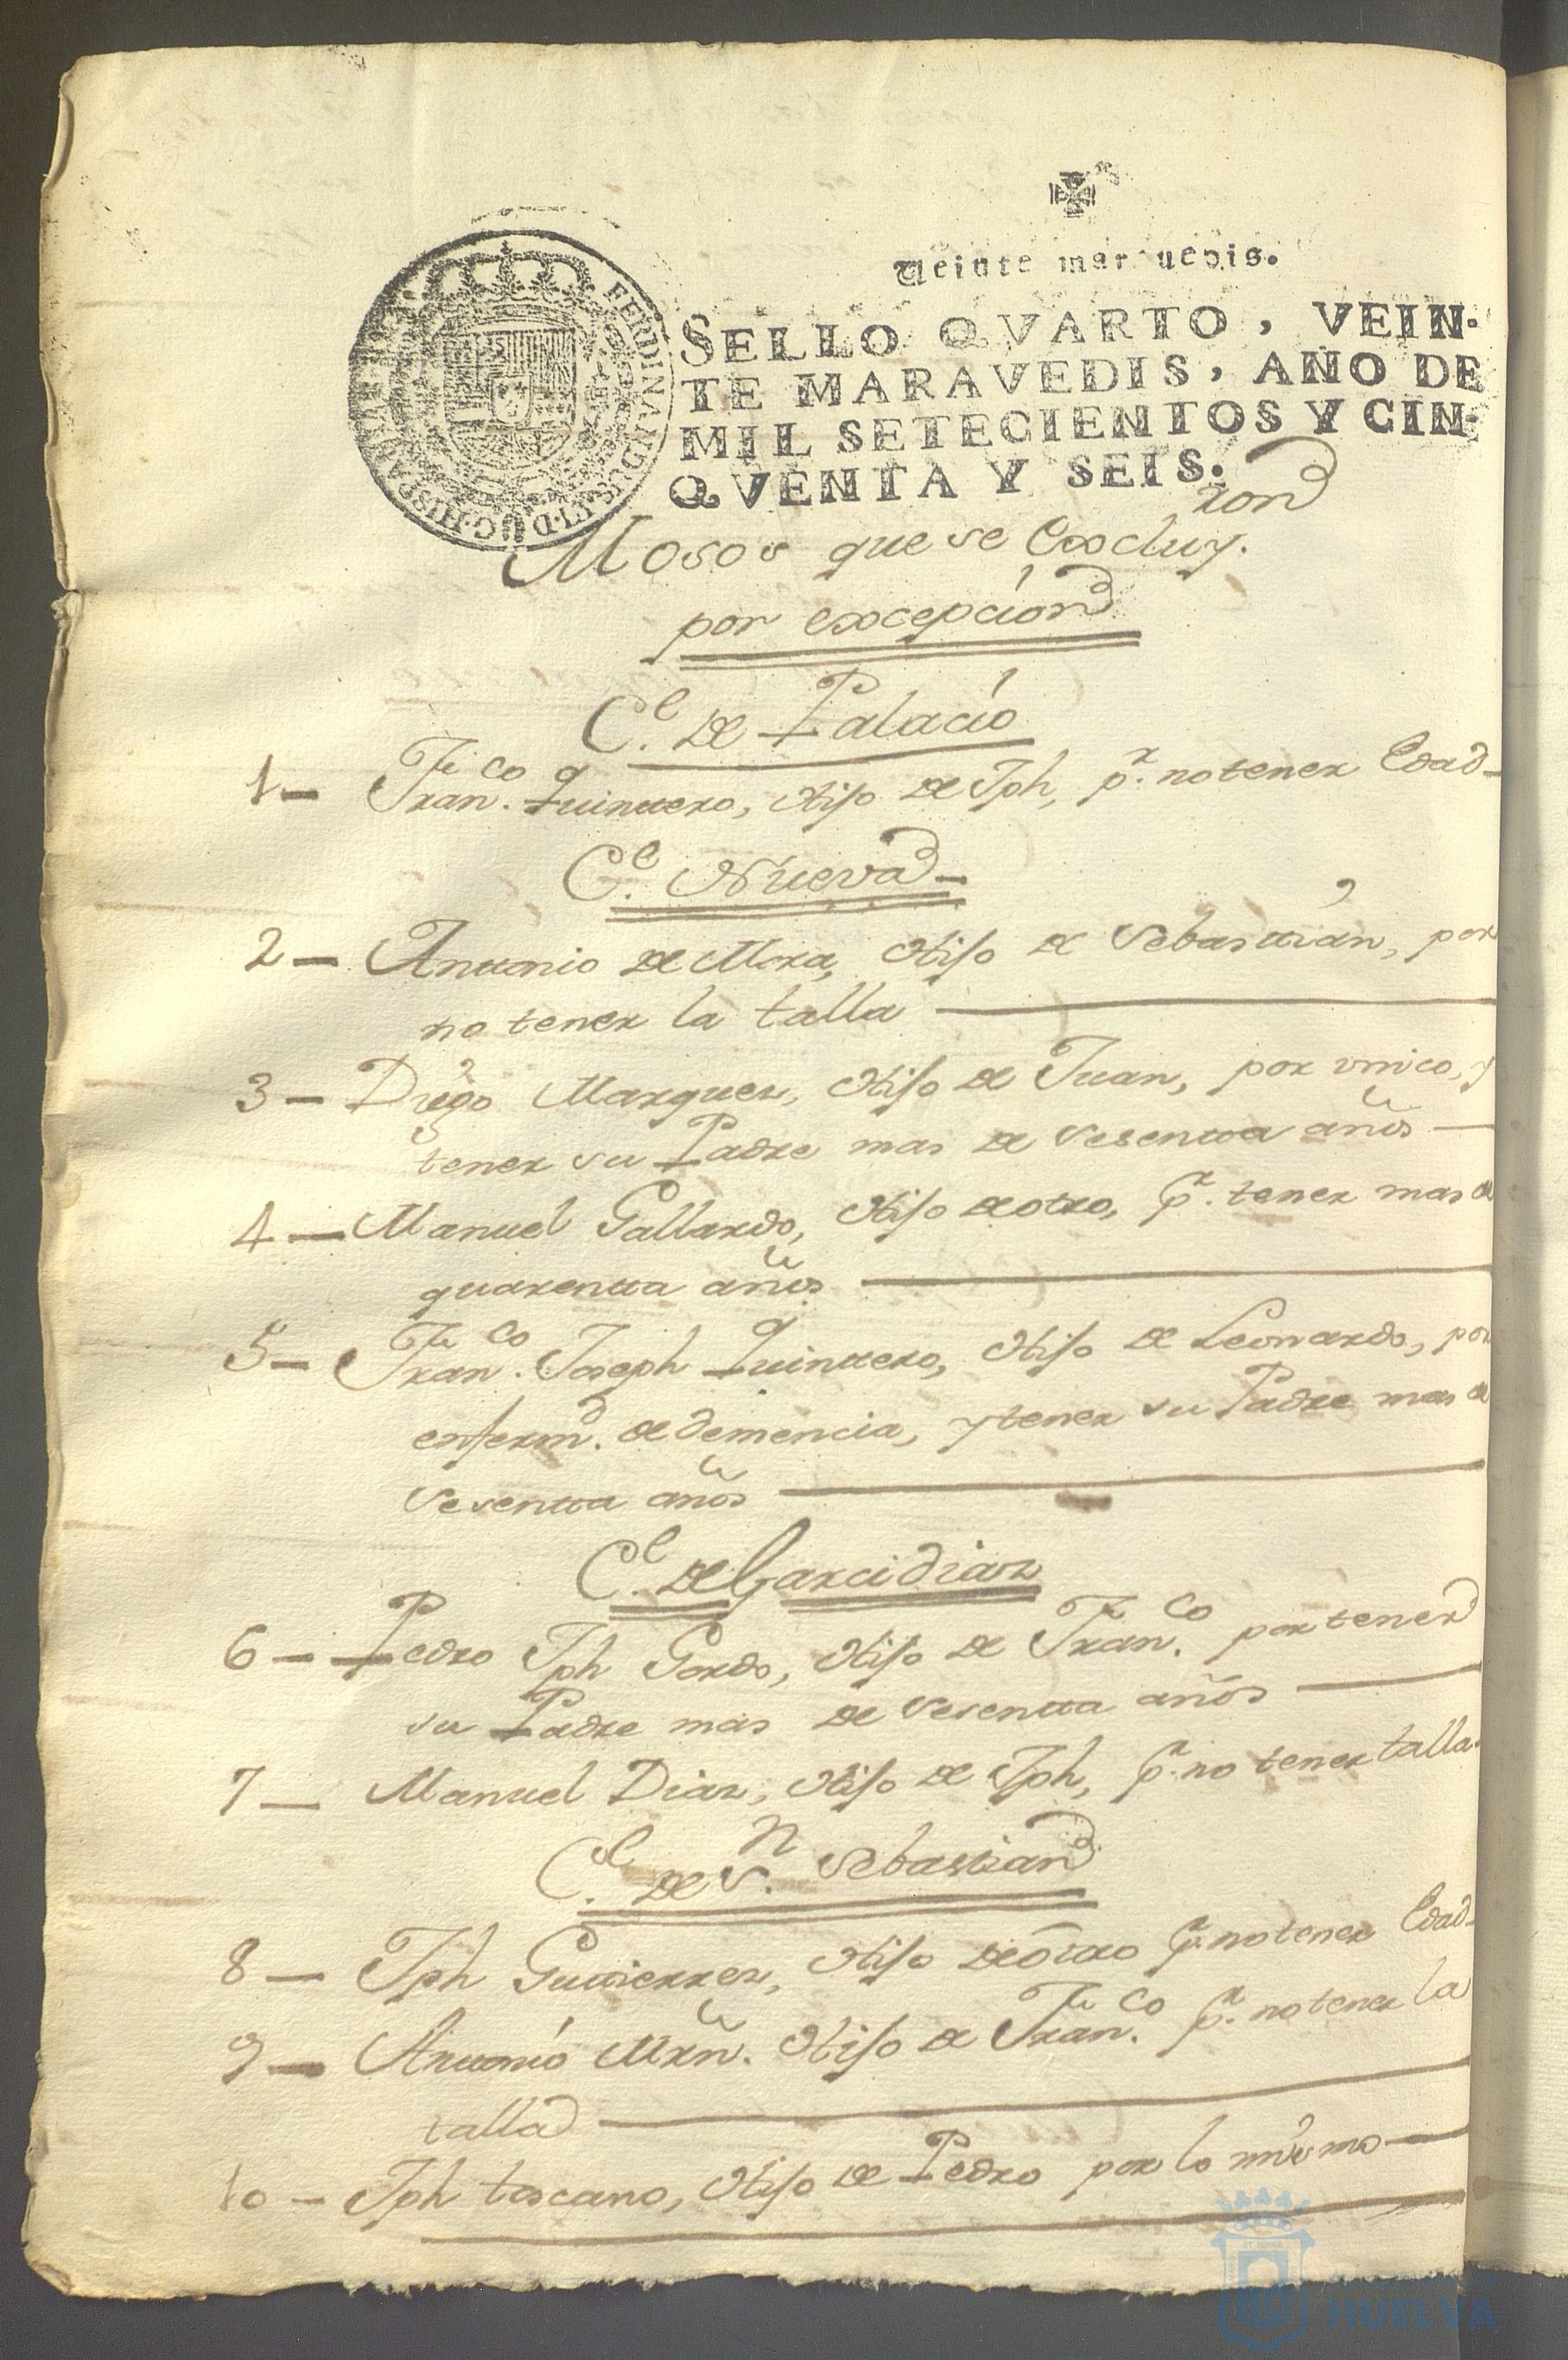 Veinte marauedis.
SELLO QVARTO, VEIN-
TE MARAVEDIS, AÑO DE
MIL SETECIENTOS Y CIN-
QVENTA Y SEIS.
FERDINANDUS HISPANIA
Mosos que se Excluy.ron
por excepcion
C.e de Palacio
1 — Fran.co Quintero, Hijo de Jph, p.r no tener Edad —
C.e Nueva —
2 — Antonio de Mora, Hijo de Sebastian, por
no tener la talla —
3 — Diego Marquez, Hijo de Juan, por vnico, y
tener su Padre mas de sesenta años —
4 — Manuel Gallardo, Hijo de otro, p.r tener mas de
quarenta años —
5 — Fran.co Joseph Quintero, Hijo de Leonardo, por
enferm.d de demencia, y tener su Padre mas de
sesenta años —
C.e de Garcidiaz
6 — Pedro Jph Gordo, Hijo de Fran.co por tener
su Padre mas de sesenta años —
7 — Manuel Diaz, Hijo de Jph, p.r no tener talla.
C.e de S.n Sebastian
8 — Jph Gutierrez, Hijo de otro p.r no tener Edad —
9 — Antonio Mrñ. Hijo de Fran.co p.r no tener la
talla —
10 — Jph toscano, Hijo de Pedro por lo mismo —
HUELVA